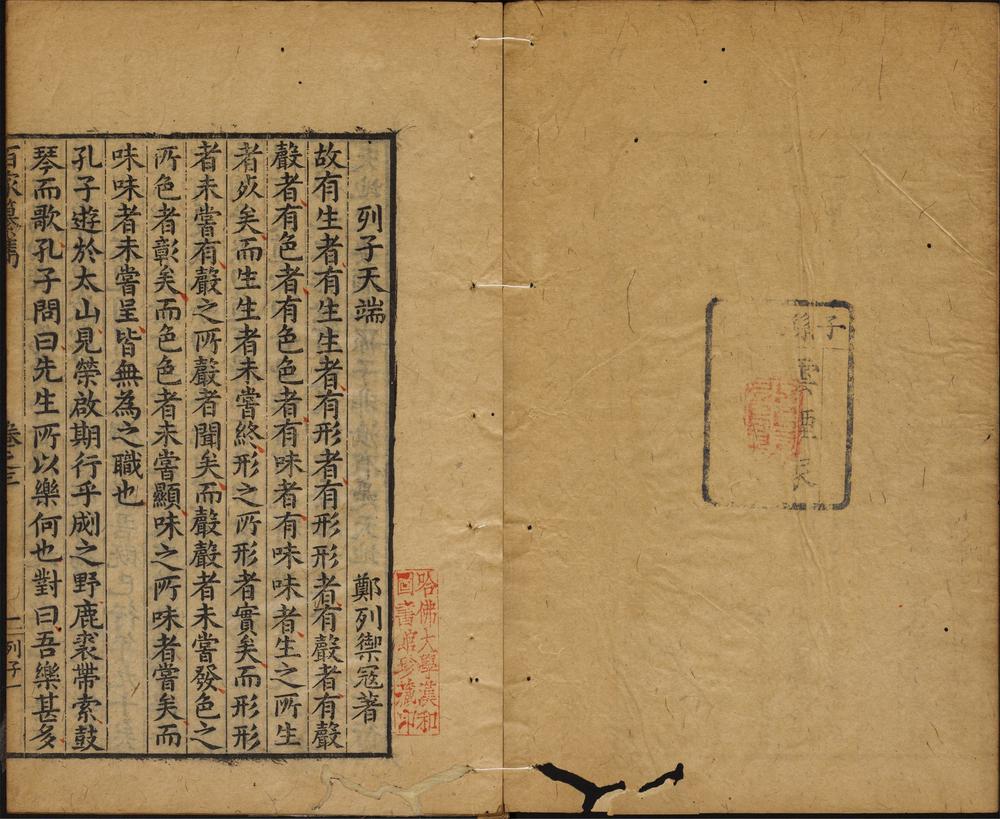 列子天端　鄭列禦冦著
故有生者有生生者有形者有形形者有聲者有聲
聲者有色者有色色者有味者有味味者生之所生
者死矣而生生者未嘗終形之所形者實矣而形形
者未嘗有聲之所聲者聞矣而聲聲者未嘗發色之
所色者彰矣而色色者未嘗顯味之所味者嘗矣而
味味者未嘗呈皆無為之職也
孔子遊於太山見榮啟期行乎郕之野鹿裘帶索鼓
琴而歌孔子問曰先生所以樂何也對曰吾樂甚多
百家類纂　卷之三　列子一
哈佛大學漢和
圖書館珍藏印
子